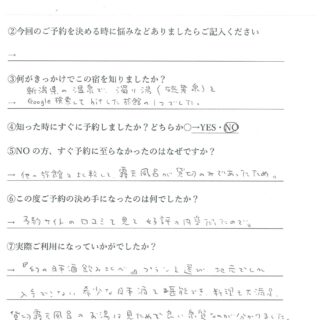 ②今回のご予約を決める時に悩みなどありましたらご記入ください
→
③何がきっかけでこの宿を知りましたか？
新潟県の温泉で、濁り湯(硫黄泉)を
→ Google 検索して hit した旅館の1つでした。
④知った時にすぐに予約しましたか？どちらか○→YES・NO
⑤NOの方、すぐ予約に至らなかったのはなぜですか？
→ 他の旅館と比較して露天風呂が貸切のみであったため。
⑥この度ご予約の決め手になったのは何でしたか？
→ 予約サイトの口コミを見て好評の内容だったので。
⑦実際ご利用になっていかがでしたか？
→ 『幻の日本酒飲みくらべ』プランを選び 地元でしか
入手できない希少な日本酒を堪能でき、料理も大満足
貸切露天風呂のお湯は見ためで良い泉質なのが分かりました。